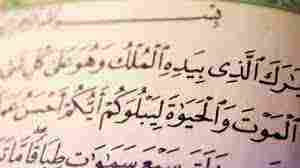 بِسْـ
ـبَٰرَكَ ٱلَّذِى بِيَدِهِ ٱلْمُلْكُ وَهُوَ عَلَىٰ كُلِّ
ٱلْمَوْتَ وَٱلْحَيَوٰةَ لِيَبْلُوَكُمْ أَيُّكُمْ أَحْسَنُ
سَبْعَ سَمَٰوَٰتٍ طِبَاقًا مَّا